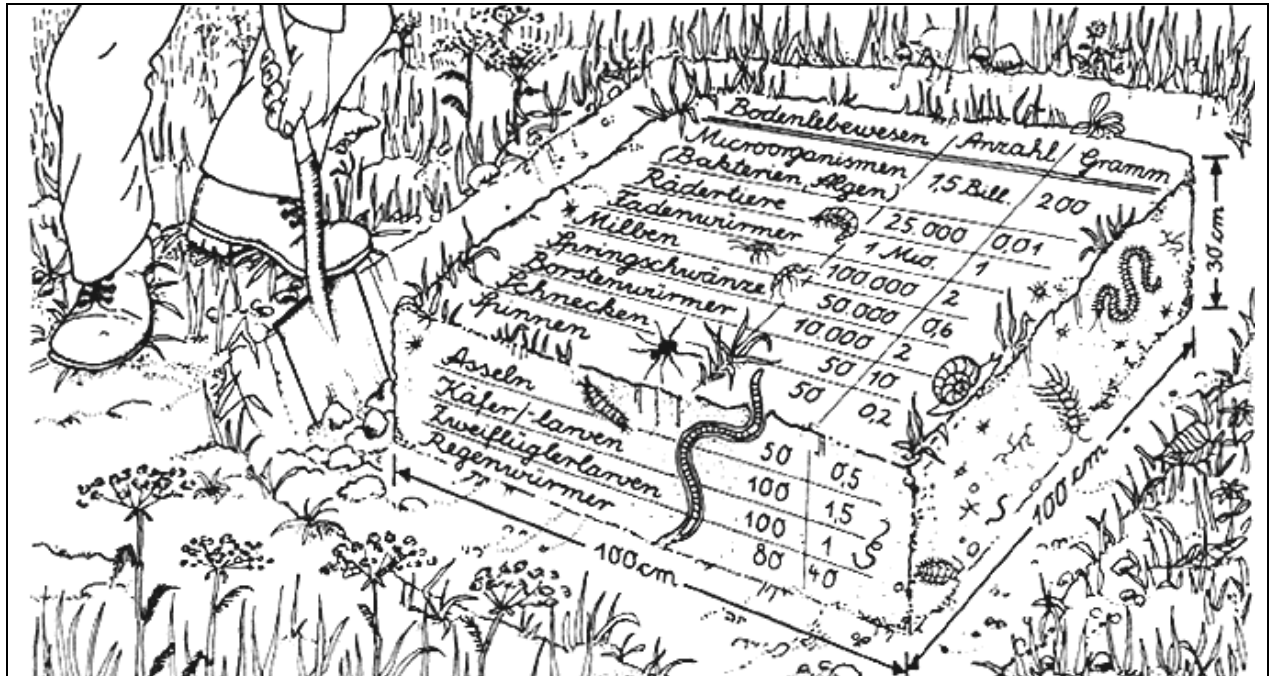 Bodenlebewesen Anzahl Gramm
Microorganismen
(Bakterien, Algen) 1,5 Bill. 200
Rädertiere 25.000 0,01
Fadenwürmer 1 Mio. 1
Milben 100 000 2
Springschwänze 50 000 0,6
Borstenwürmer 10 000 2
Schnecken 50 10
Spinnen 50 0,2
Asseln 50 0,5
Käfer/-larven 100 1,5
Zweiflüglerlarven 100 1
Regenwürmer 80 40
30 cm
100 cm
100 cm